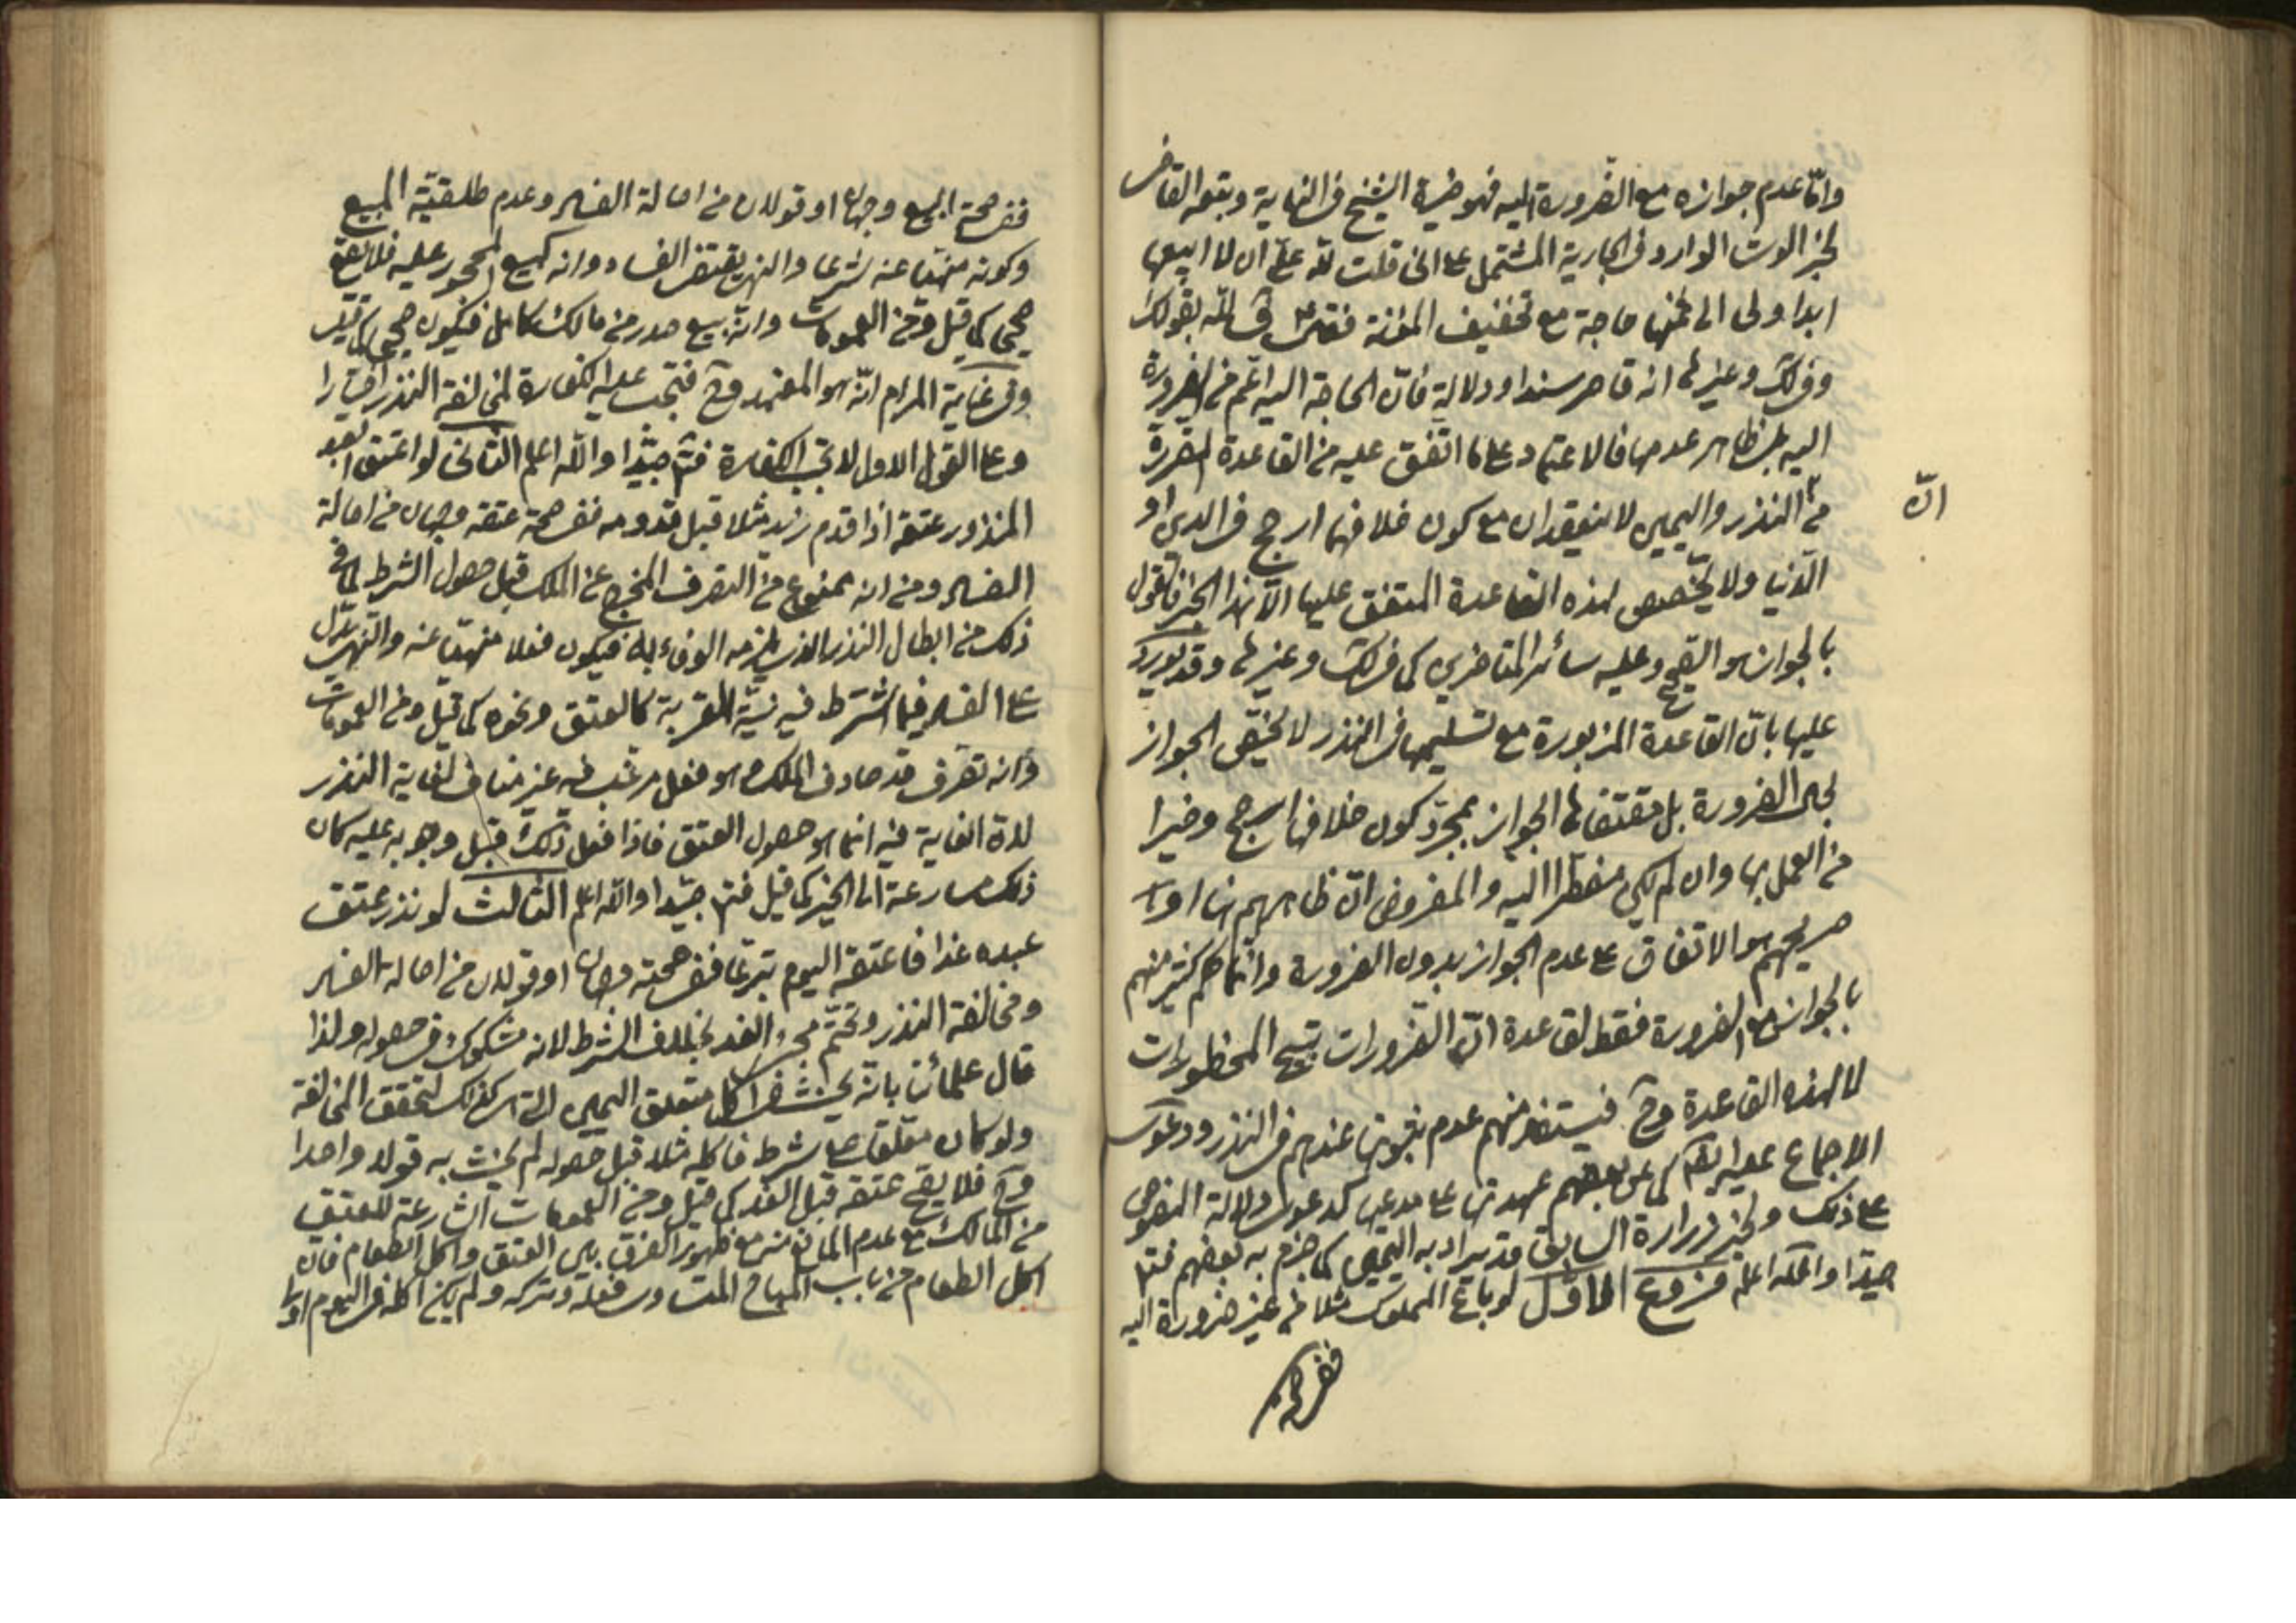 وامّا عدم جوازه مع الضرورة اليه فهو خيرة الشيخ في النهاية وتبعه القاضي
لخبر الوشا الوارد في الجارية المشتمل على اني قلت لله عليّ ان لا ابيعها
ابدا ولي الى ثمنها حاجة مع تخفيف المؤنة فقال فِ لله بقولك
وفي لك وغيرها انه قاصر سندا ودلالة فانّ الحاجة اليه اعّم من الضرورة
اليه بل ظاهر عدمها فالاعتماد على ما اتّفق عليه من القاعدة المقررة
انّ
من النذر واليمين لا ينعقدان مع كون خلافهما ارجح في الدين او
الدّنيا ولا مخّصص لهذه القاعدة المتفق عليها الّا هذا الخبر فالقول
بالجواز هو الصّحيح وعليه سائر المتأخرين كما في لك وغيرها وقد يورد
عليها بانّ القاعدة المزبورة مع تسليمها في النذر لا تخّص الجواز
بحال الضرورة بل مقتضاها الجواز بمجرّد كون خلافها ارجح وخيرا
من العمل بها وان لم يكن مضطرا اليه والمفروض انّ ظاهرهم هنا او
صريحهم هو الاتفاق على عدم الجواز بدون الضرورة وانما حكم كثير منهم
بالجواز مع الضرورة فقط لقاعدة انّ الضرورات تبيح المحظورات
لا لهذه القاعدة وح فيستفاد منهم عدم ثبوتها عندهم في النذر ودعوى
الاجماع عليه ايضا كما عن بعضهم عهدتها على مدعيها كدعوى دلالة النصوص
على ذلك ولخبر زرارة السابق قد يراد به اليمين كما جزم به بعضهم فتدبّر
جيّدا والله اعلم فروع الاوّل لو باع المملوك مثلا من غير ضرورة اليه
ففي صحة
ففي صحة البيع وجهان او قولان من اصالة الفساد وعدم طلقيّة المبيع
وكونه منهيّا عنه شرعا والنهي يقتضي الفساد وانه كبيع المحجور عليه فلا يقع
صحيحا كما قيل ومن العمومات وانّه بيع صدر من مالك كامل فيكون صحيحا كما قيل
وفي غاية المرام انّه هو المعتمد وح فتجب عليه الكفارة لمخالفة النذر اختيارا
وعلى القول الاول لا تجب الكفارة فتدبر جيّدا والله اعلم الثاني لو اعتق العبد
المنذور عتقه اذا قدم زيد مثلا قبل قدومه ففي صحة عتقه وجهان من اصالة
الفساد ومن انه ممنوع من التصرف المخرج عن الملك قبل حصول الشرط لما في
ذلك من ابطال النذر الذي يلزمه الوفاء به فيكون فعلا منهيّا عنه والنهي يدّل
على الفساد فيما اشترط فيه نيّة القربة كالعتق ونحوه كما قيل ومن العمومات
وانه تصرف قد صادف الملك وهو فعل مرغب فيه غير مناف لغاية النذر
لانّ الغاية فيه انما هو حصول العتق فاذا فعل ذلك قبل وجوبه عليه كان
ذلك مسارعة الى الخير كما قيل فتدبر جيّدا والله اعلم الثالث لو نذر عتق
عبده غدا فاعتقه اليوم تبرعّا ففي صحته وجهان او قولان من اصالة الفساد
ومخالفة النذر وتحتّم مجيء الغد بخلاف الشرط لانه مشكوك في حصوله ولذا
قال علمائنا بانّه يحنث اذا اكل متعلق اليمين كذلك لتحقق المخالفة
ولو كان معلقا على شرط فاكله مثلا قبل حصوله لم يحنث به قولا واحدا
وح فلا يقع عتقه قبل الغد كما قيل ومن العمومات الشارعة للعتق
من المالك مع عدم المانع منه مع ظهور الفرق بين العتق واكل الطعام فان
اكل الطعام من باب المباح المتساوي فعله وتركه ولم يكن اكله في اليوم او